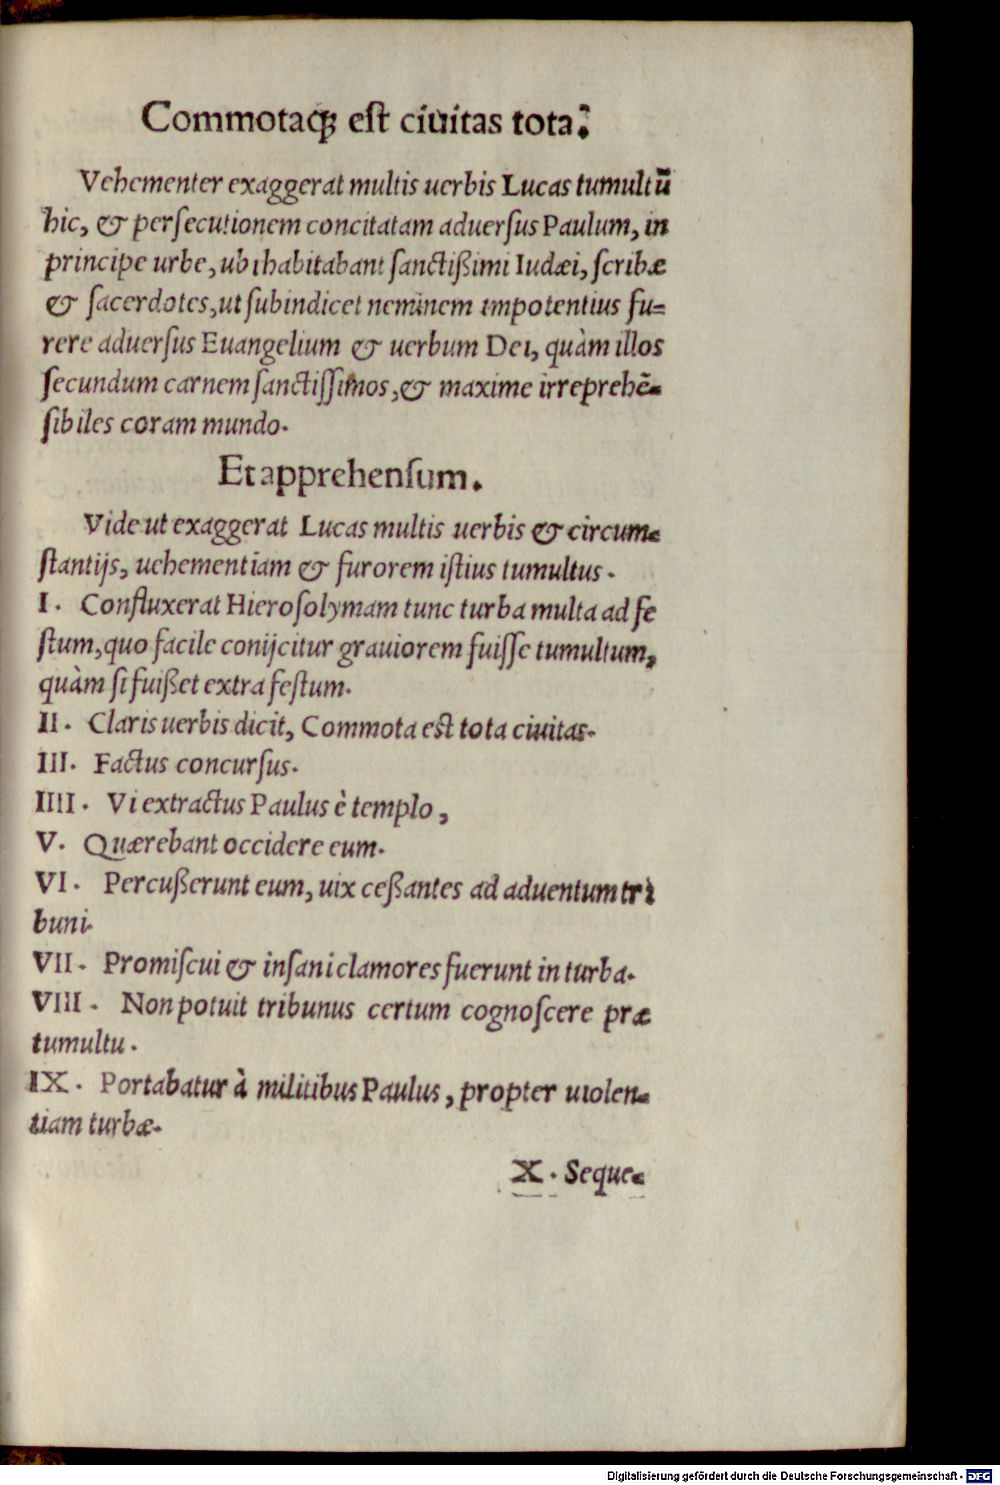 Commotaq́ꝫ eſt ciuitas tota.
Vehementer exaggerat multis uerbis Lucas tumultū
hic, & perſecutionem concitatam aduerſus Paulum, in
principe urbe, ubi habitabant ſanctißimi Iudæi, ſcribæ
& ſacerdotes, ut ſubindicet neminem impotentius fu=
rere aduerſus Euangelium & uerbum Dei, quàm illos
ſecundum carnem ſanctiſſimos, & maxime irreprehē=
ſibiles coram mundo.
Et apprehenſum.
Vide ut exaggerat Lucas multis uerbis & circum=
ſtantijs, uehementiam & furorem iſtius tumultus.
I. Confluxerat Hieroſolymam tunc turba multa ad fe
ſtum, quo facile conijcitur grauiorem fuiſſe tumultum,
quàm ſi fuißet extra feſtum.
II. Claris uerbis dicit, Commota eſt tota ciuitas.
III. Factus concurſus.
IIII. Vi extractus Paulus è templo,
V. Quærebant occidere eum.
VI. Percußerunt eum, uix ceßantes ad aduentum tri
buni.
VII. Promiſcui & inſani clamores fuerunt in turba.
VIII. Non potuit tribunus certum cognoſcere præ
tumultu.
IX. Portabatur à militibus Paulus, propter uiolen=
tiam turbæ.
X. Seque=
Digitalisierung gefördert durch die Deutsche Forschungsgemeinschaft - DFG